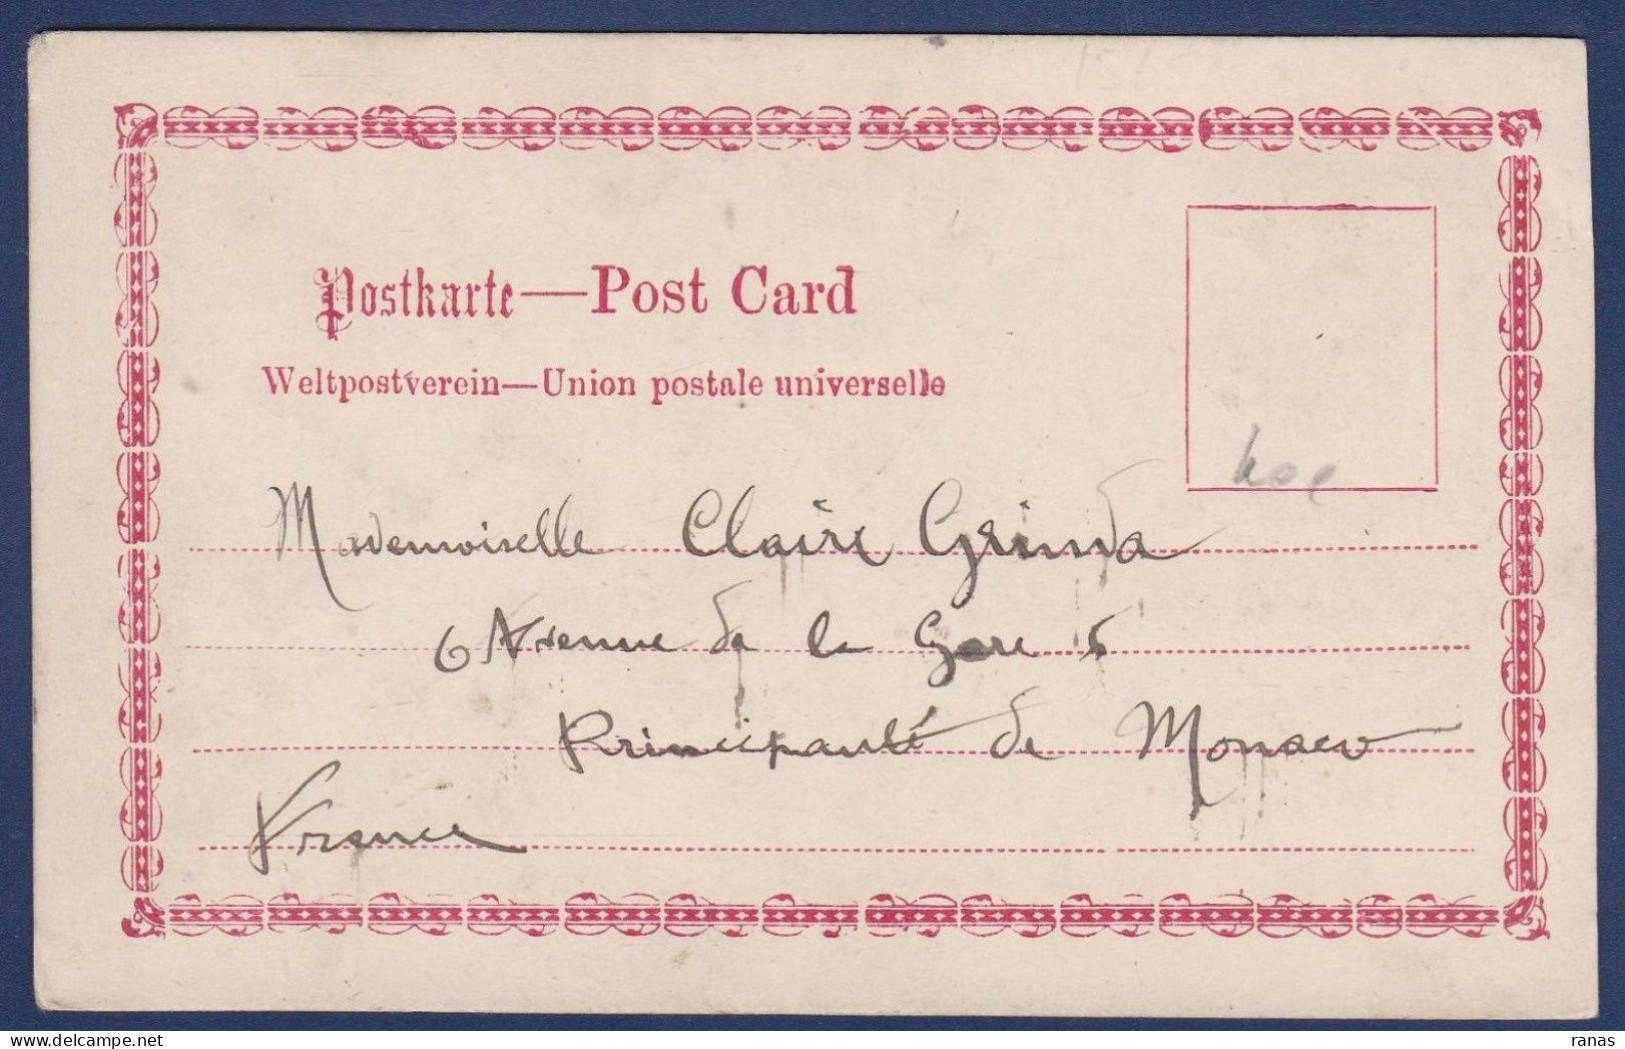 Postkarte—Post Card
Weltpostverein—Union postale universelle
Mademoiselle Claire Grinda
6 Avenue de la Gare 6
Principauté de Monaco
France
delcampe.net
ranas